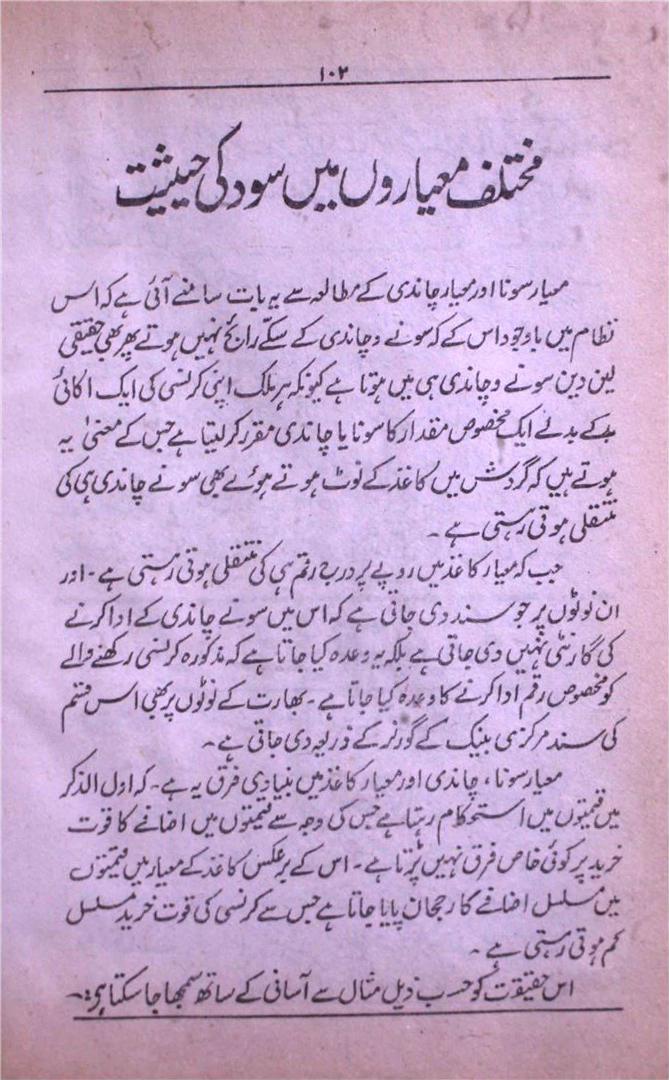 ۱۰۲
مختلف معیاروں میں سود کی حیثیت
معیار سونا اور معیار چاندی کے مطالعہ سے یہ بات سامنے آئی ہے کہ اس
نظام میں باوجود اس کے کہ سونے و چاندی کے سکے رائج نہیں ہوتے پھر بھی حقیقی
لین دین سونے و چاندی ہی میں ہوتا ہے کیونکہ ہر ملک اپنی کرنسی کی ایک اکائی
کے بدلے ایک مخصوص مقدار کا سونا یا چاندی مقرر کر لیتا ہے جس کے معنیٰ یہ
ہوتے ہیں کہ گردش میں کاغذ کے نوٹ ہوتے ہوئے بھی سونے چاندی ہی کی
منتقلی ہوتی رہتی ہے ۔
جب کہ معیار کاغذ میں روپے پر درج رقم ہی کی منتقلی ہوتی رہتی ہے ۔ اور
ان نوٹوں پر جو سند دی جاتی ہے کہ اس میں سونے چاندی کے ادا کرنے
کی گارنٹی نہیں دی جاتی ہے بلکہ یہ وعدہ کیا جاتا ہے کہ مذکورہ کرنسی رکھنے والے
کو مخصوص رقم ادا کرنے کا وعدہ کیا جاتا ہے ۔ بھارت کے نوٹوں پر بھی اس قسم
کی سند مرکزی بینک کے گورنر کے ذریعہ دی جاتی ہے ۔
معیار سونا ، چاندی اور معیار کاغذ میں بنیادی فرق یہ ہے ۔ کہ اول الذکر
میں قیمتوں میں استحکام رہتا ہے جس کی وجہ سے قیمتوں میں اضافے کا قوت
خرید پر کوئی خاص فرق نہیں پڑتا ہے ۔ اس کے برعکس کاغذ کے معیار میں قیمتوں
میں مسلسل اضافے کا رجحان پایا جاتا ہے جس سے کرنسی کی قوت خرید مسلسل
کم ہوتی رہتی ہے ۔
اس حقیقت کو حسب ذیل مثال سے آسانی کے ساتھ سمجھا جا سکتا ہے :۔